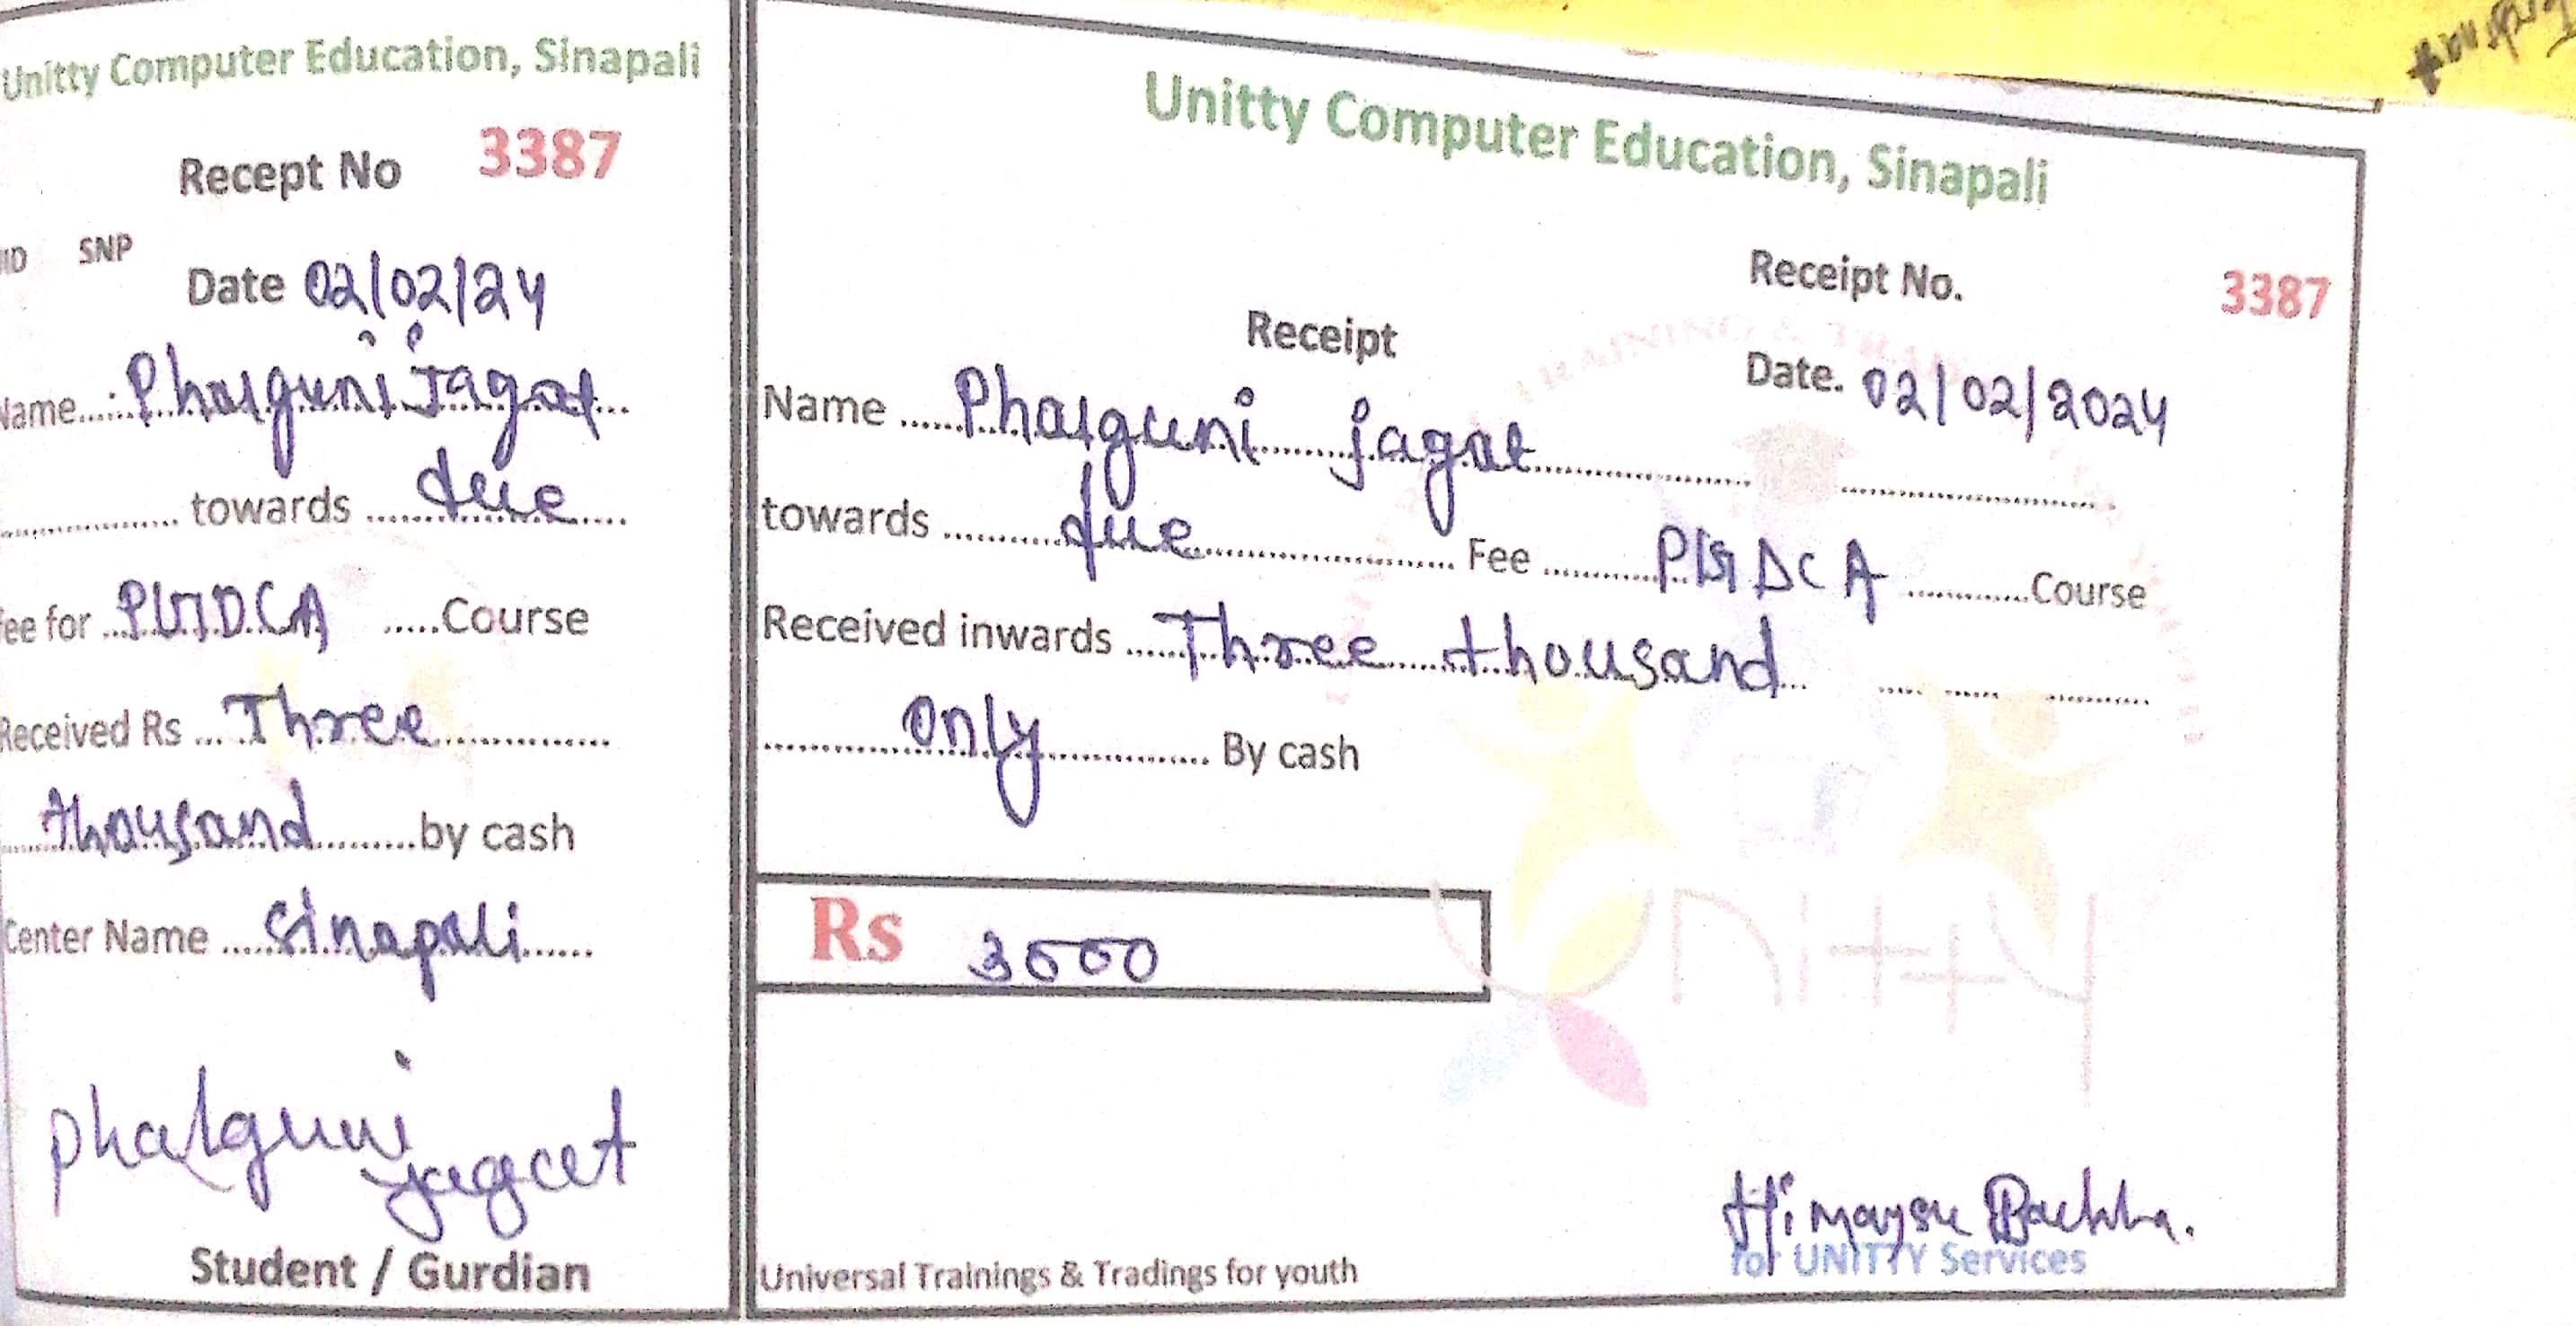 Unitty Computer Education, Sinapali
Recept No 3387
SNP
Date 02/02/24
Name Phalguni Jagat
towards due
fee for PGDCA Course
Received Rs Three
thousand by cash
Center Name Sinapali
phalguni
jagat
Student / Gurdian
Unitty Computer Education, Sinapali
Receipt No. 3387
Receipt
Date. 02/02/2024
Name Phalguni jagat
towards due Fee PGDCA Course
Received inwards Three thousand
only By cash
Rs 3000
unitty
for UNITTY Services
Universal Trainings & Tradings for youth